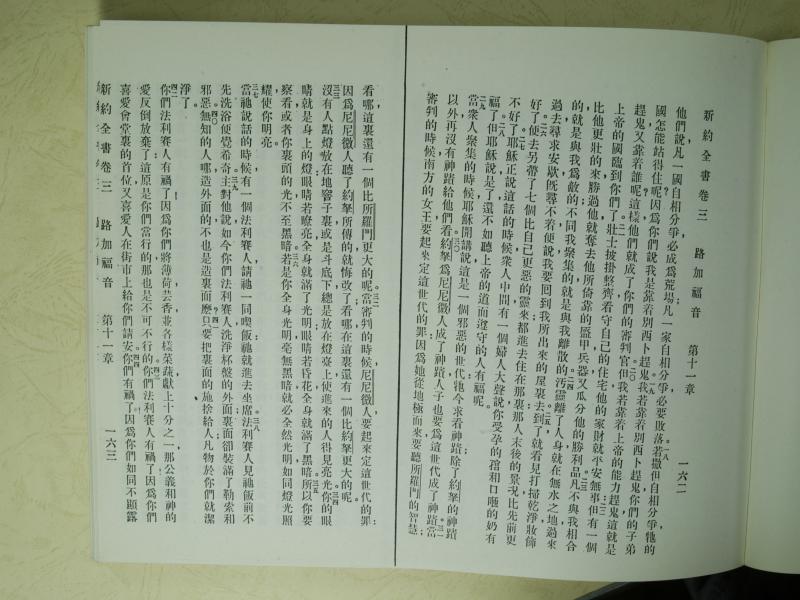 新約全書卷三　路加福音　第十一章　一六二
他們說凡一國自相分爭必成爲荒場凡一家自相分爭必要敗落若撒但自相分爭牠的
國怎能站得住呢因爲你們說我是靠着別西卜趕鬼我若靠着別西卜趕鬼你們的子弟
趕鬼又靠着誰呢這樣他們就成了你們的審判官但我若靠着上帝的能力趕鬼這就是
上帝的國臨到你們了壯士披掛整齊看守自己的住宅他的家財就平安無事但有一個
比他更壯的來勝過他就奪去他所倚靠的盔甲兵器又瓜分他的勝利品凡不與我相合
的就是與我爲敵的不同我聚集的就是與我離散的汚靈離了人身就在無水之地過來
過去尋求安歇既尋不着便說我要回到我所出來的屋裏去到了就看見打掃乾淨妝飾
好了便去另帶了七個比自己更惡的靈來都進去住在那裏那人末後的景況比先前更
不好了耶穌正說這話的時候衆人中間有一個婦人大聲說你受孕的和口咂的奶有
福了但耶穌說是了還不如聽上帝的道而遵守的人有福呢
當衆人聚集的時候耶穌開講說這是一個邪惡的世代牠今求看神蹟除了約拏的神蹟
以外再沒有神蹟給他們看約拏爲尼尼微人成了神蹟人子也要爲這世代成了神蹟當
審判的時候南方的女王要起來定這世代的罪因爲她從地極而來要聽所羅門的智慧
看哪這裏還有一個比所羅門更大的呢當審判的時候尼尼微人要起來定這世代的罪
因爲尼尼微人聽了約拏所傳的就悔改了看哪在這裏還有一個比約拏更大的呢
沒有人點燈放在地窨子裏或是斗底下總是放在燈臺上使進來的人得見亮光你的眼
睛就是身上的燈眼睛若瞭亮全身就滿了光明眼睛若昏花全身就滿了黑暗所以你要
察看或者你裏頭的光不至黑暗若是你全身光明毫無黑暗就必全然光明如同燈光照
耀使你明亮
當祂說話的時候有一個法利賽人請祂一同喫飯祂就進去坐席法利賽人見祂飯前不
先洗浴便覺希奇主對他說如今你們法利賽人洗淨杯盤的外面裏面卻裝滿了勒索和
邪惡無知的人哪造外面的不也是造裏面麽只要把裏面的施捨給人凡物於你們就潔
淨了
你們法利賽人有禍了因爲你們將薄荷芸香並各樣菜蔬獻上十分之一那公義和神的
愛反倒放棄了這原是你們當行的那也是不可不行的你們法利賽人有禍了因爲你們
喜愛會堂裏的首位又喜愛人在街市上給你們請安你們有禍了因爲你們如同不顯露
新約全書卷三　路加福音　第十一章　一六三